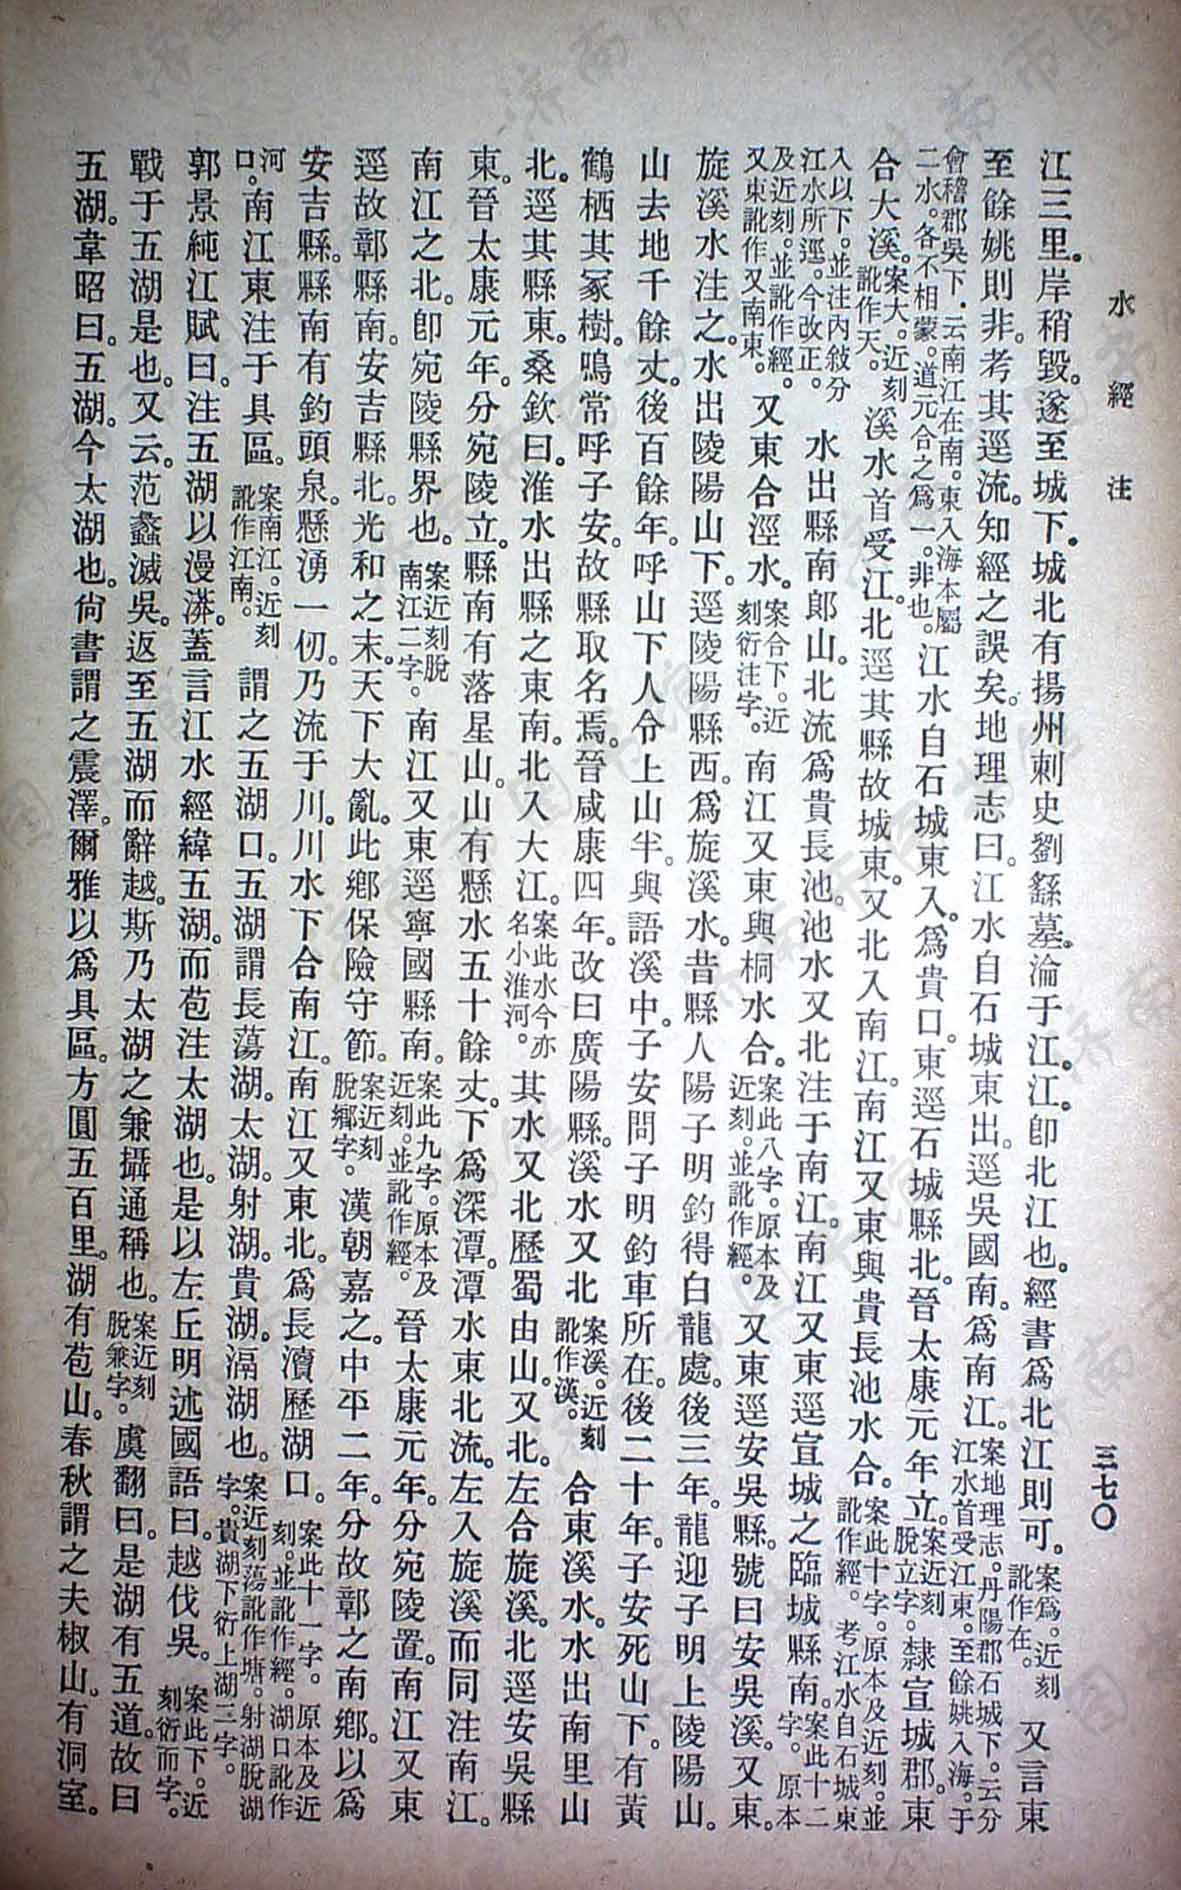 水經注
三七〇
江三里。岸稍毀。遂至城下。城北有揚州刺史劉繇墓。淪于江。江卽北江也。經書爲北江則可。案爲。近刻訛作在。又言東
至餘姚則非。考其逕流。知經之誤矣。地理志曰。江水自石城東出。逕吳國南。爲南江。案地理志。丹陽郡石城下。云分江水首受江。東至餘姚入海。于
會稽郡吳下。云南江在南。東入海。本屬二水。各不相蒙。道元合之爲一。非也。江水自石城東入。爲貴口。東逕石城縣北。晉太康元年立。案近刻脫立字。隸宣城郡。東
合大溪。案大。近刻訛作天。溪水首受江。北逕其縣故城東。又北入南江。南江又東與貴長池水合。案此十字。原本及近刻。並訛作經。考江水自石城東
入以下。並注內敍分江水所逕。今改正。水出縣南郞山。北流爲貴長池。池水又北注于南江。南江又東逕宣城之臨城縣南。案此十二字。原本
及近刻。並訛作經。又東訛作又南東。又東合涇水。案合下。近刻衍注字。南江又東與桐水合。案此八字。原本及近刻。並訛作經。又東逕安吳縣。號曰安吳溪。又東。
旋溪水注之。水出陵陽山下。逕陵陽縣西。爲旋溪水。昔縣人陽子明釣得白龍處。後三年。龍迎子明上陵陽山。
山去地千餘丈。後百餘年。呼山下人令上山半。與語溪中。子安問子明釣車所在。後二十年。子安死山下。有黃
鶴栖其冢樹。鳴常呼子安。故縣取名焉。晉咸康四年。改曰廣陽縣。溪水又北案溪。近刻訛作漢。合東溪水。水出南里山
北。逕其縣東。桑欽曰。淮水出縣之東南。北入大江。案此水今亦名小淮河。其水又北歷蜀由山。又北。左合旋溪。北逕安吳縣
東。晉太康元年。分宛陵立。縣南有落星山。山有懸水五十餘丈。下爲深潭。潭水東北流。左入旋溪而同注南江。
南江之北。卽宛陵縣界也。案近刻脫南江二字。南江又東逕寧國縣南。案此九字。原本及近刻。並訛作經。晉太康元年。分宛陵置。南江又東
逕故鄣縣南。安吉縣北。光和之末。天下大亂。此鄕保險守節。案近刻脫鄕字。漢朝嘉之。中平二年。分故鄣之南鄕。以爲
安吉縣。縣南有釣頭泉。懸湧一仞。乃流于川。川水下合南江。南江又東北。爲長瀆歷湖口。案此十一字。原本及近刻。並訛作經。湖口訛作
河口。南江東注于具區。案南江。近刻訛作江南。謂之五湖口。五湖謂長蕩湖。太湖。射湖。貴湖。滆湖也。案近刻蕩訛作塘。射湖脫湖字。貴湖下衍上湖三字。
郭景純江賦曰。注五湖以漫漭。蓋言江水經緯五湖。而苞注太湖也。是以左丘明述國語曰。越伐吳。案此下。近刻衍而字。
戰于五湖是也。又云。范蠡滅吳。返至五湖而辭越。斯乃太湖之兼攝通稱也。案近刻脫兼字。虞翻曰。是湖有五道。故曰
五湖。韋昭曰。五湖。今太湖也。尙書謂之震澤。爾雅以爲具區。方圓五百里。湖有苞山。春秋謂之夫椒山。有洞室。